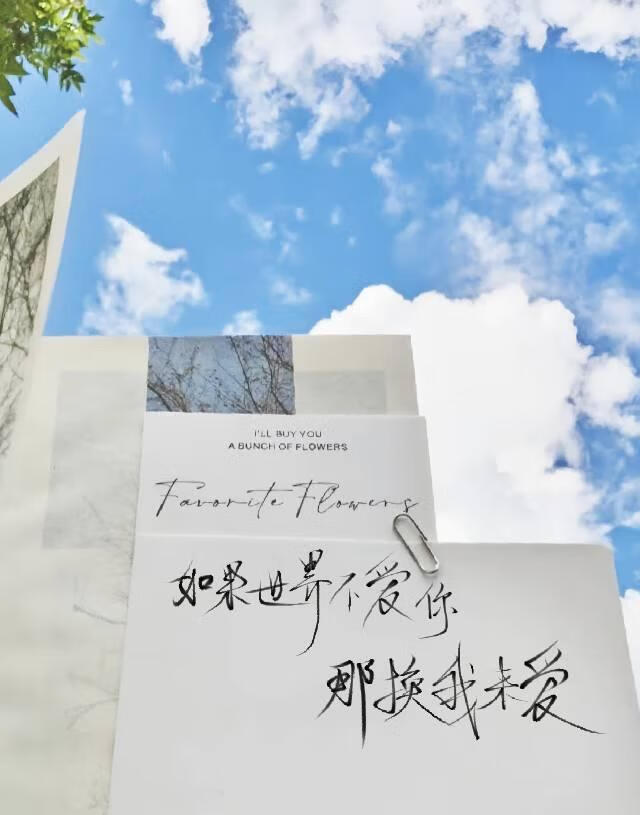 I'LL BUY YOU
A BUNCH OF FLOWERS
Favorite Flowers
如果世界不爱你
那换我来爱